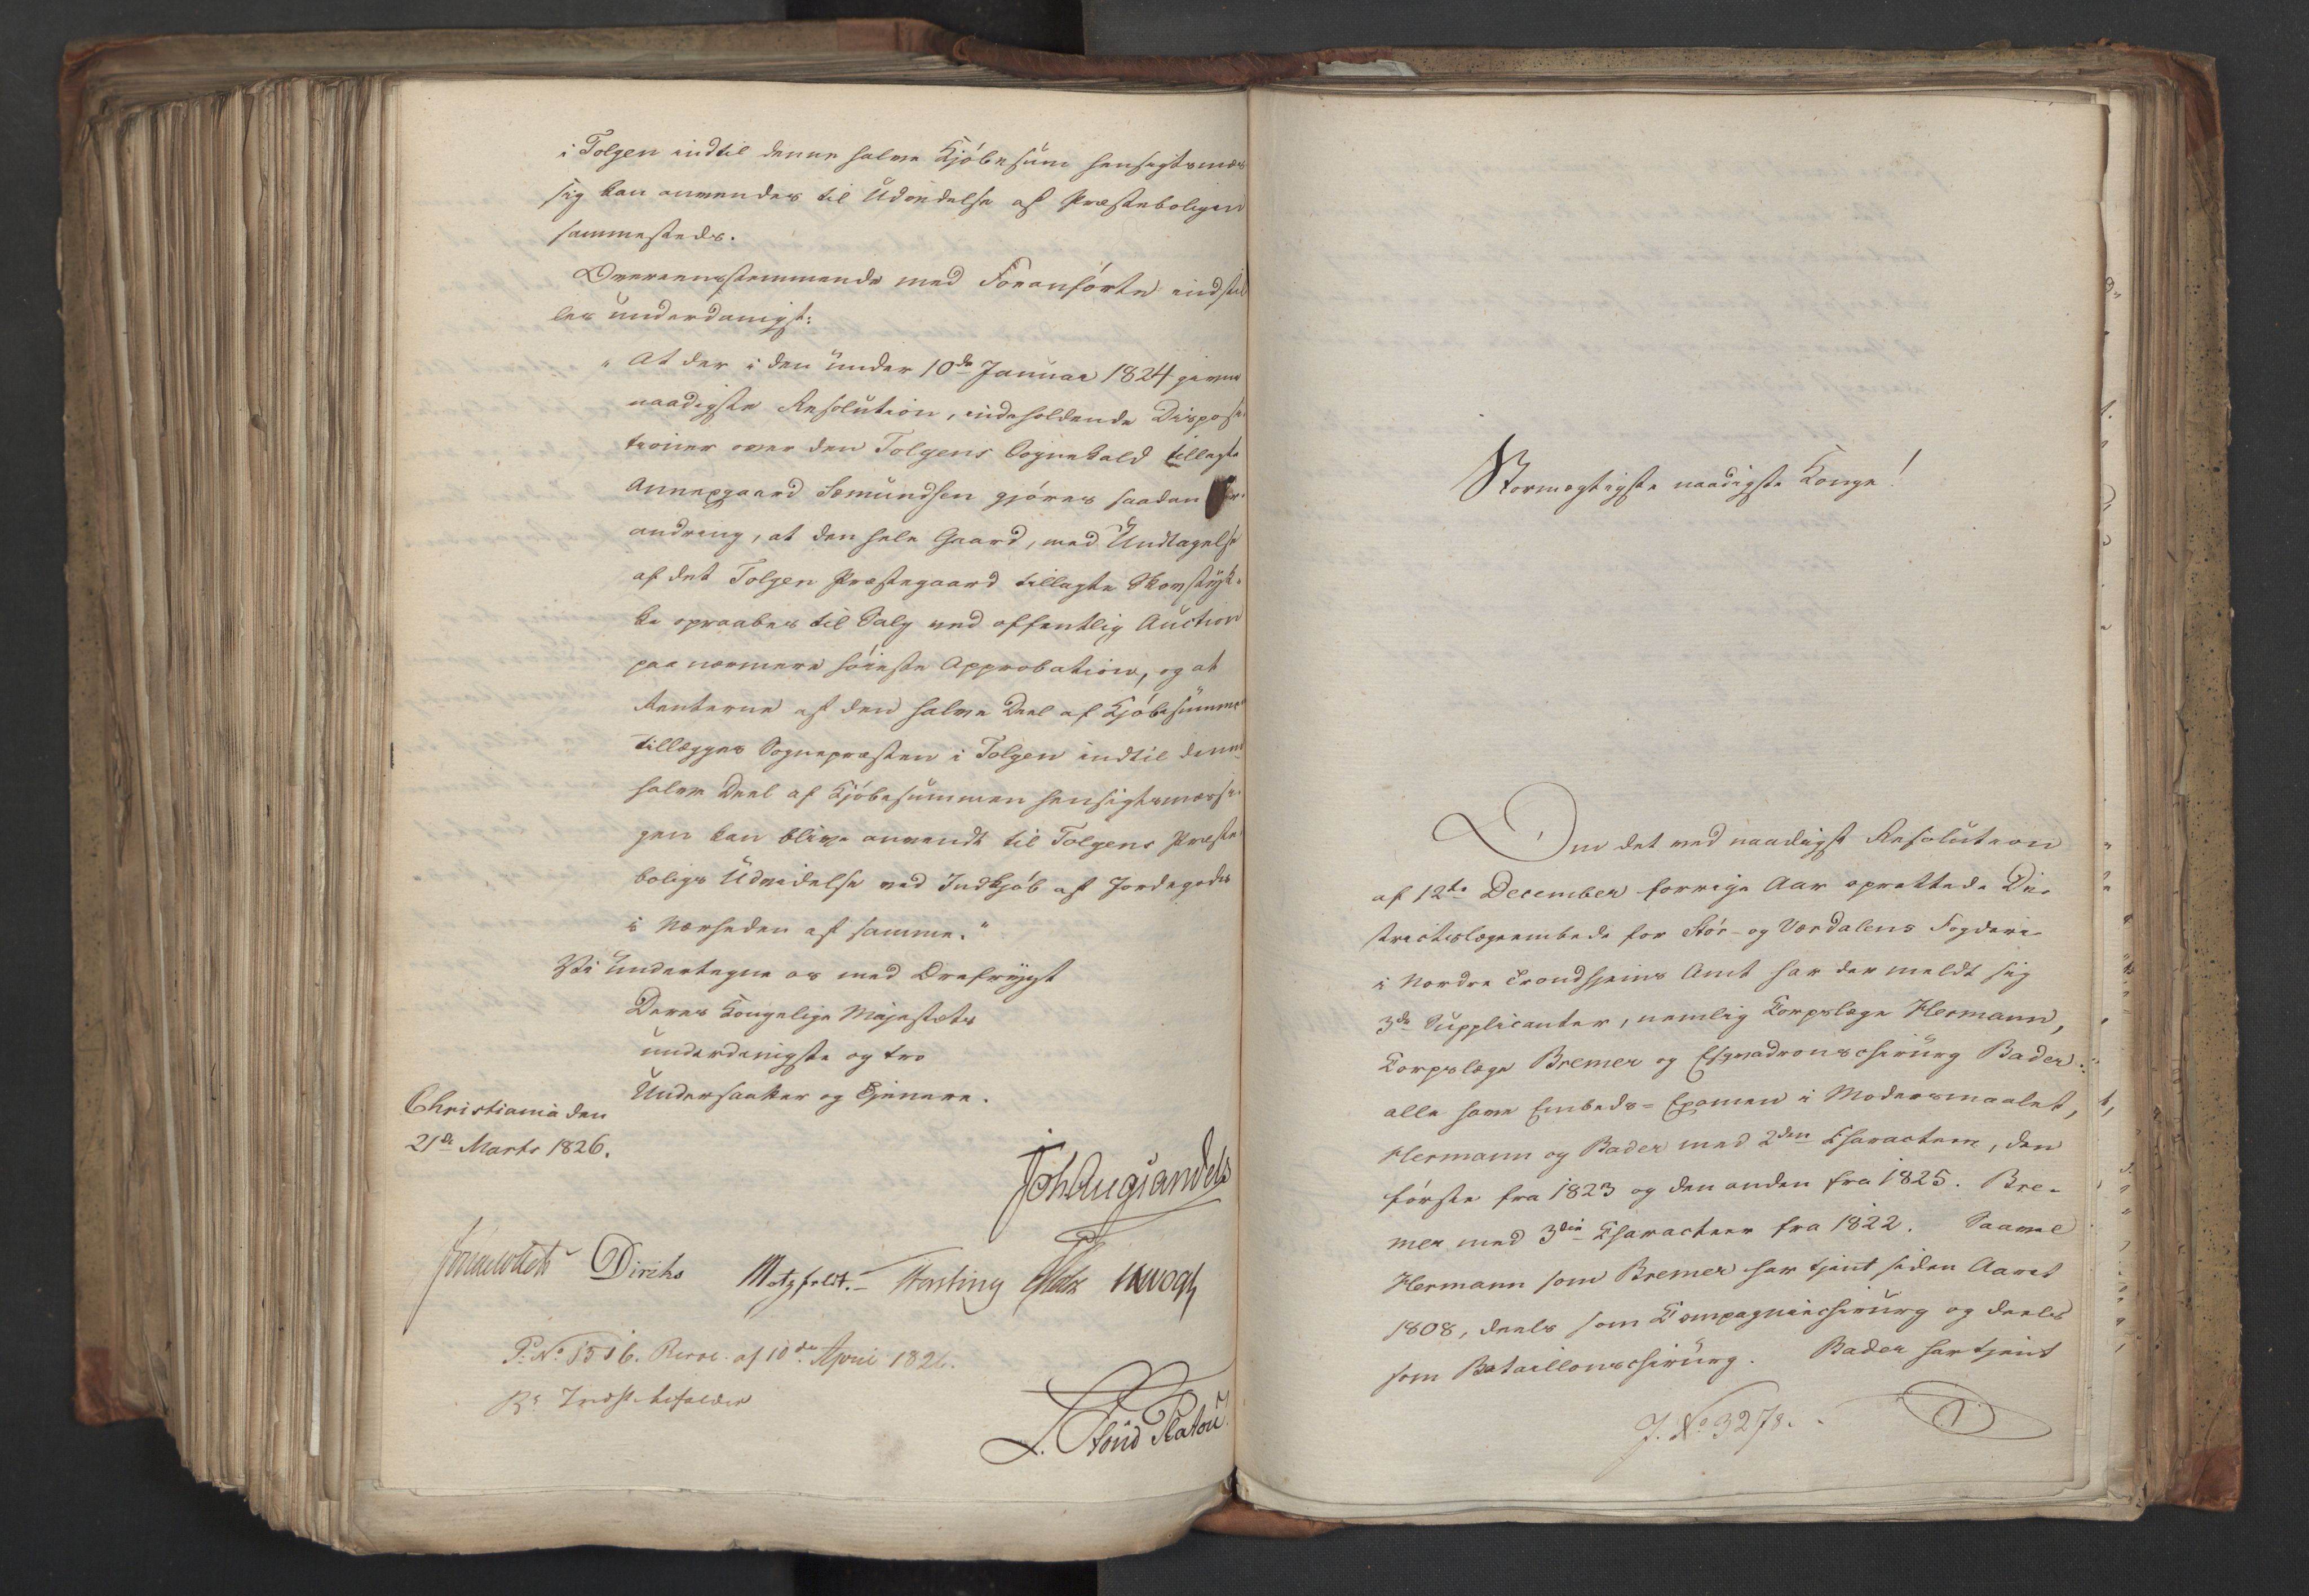 i Tolgen indtil denne halve Kjöbesum hensigtsmæs
sig kan anvendes til Udvidelse af Præsteboligen
sammesteds.
Overeensstemmende med Foranförte indstil
les underdanigst:
" At der i den under 10de Januar 1824 givne
naadigste Resolution, indeholdende Disposi-
tioner over den Tolgens Sognekald tillagte
Annexgaard Sæmundsen gjöres saadan For-
andring, at den hele Gaard, med Undtagelse
af det Tolgen Præstegaard tillagte Skovstyk-
ke opraabes til Salg ved offentlig Auction
paa nærmere höieste Approbation, og at
Renterne af den halve Deel af Kjöbesummen
tillægges Sognepræsten i Tolgen indtil denne
halve Deel af Kjöbesummen hensigtsmæssi-
gen kan blive anvendt til Tolgens Præste
boligs Udvidelse ved Indkjöb af Jordegods
i Nærheden af samme."
Vi undertegne os med Ærefrygt
Deres Kongelige Majestæts
underdanigste og tro
Undersaatter og Tjenere.
Christiania den
21de Marts 1826.
Joh Aug Sandels
Diriks Motzfeldt. Fasting
P: No 1516. Resol. af 10de April 1826.
Br Indst. bifaldes
L. Stoud Platou
Stormægtigste naadigste Konge!
Om det ved naadigst Resolution
af 12te December forrige Aar oprettede Di-
strictslægeembede for Stör- og Værdalens Fogderie
i Nordre Trondhjems Amt har der meldt sig
3de Supplicanter, nemlig Corpslæge Hermann,
Corpslæge Bremer og Esquadronschirurg Bader,
alle have Embeds-Examen i Modersmaalet,
Hermann og Bader med 2den Charactere, den
förste fra 1823 og den anden fra 1825. Bre-
mer med 3die Characteer fra 1822. Saavel
Hermann som Bremer har tjent siden Aaret
1808, deels som Compagniechirurg og deels
som Bataillonschirurg. Bader har tjent
J. No 3278.